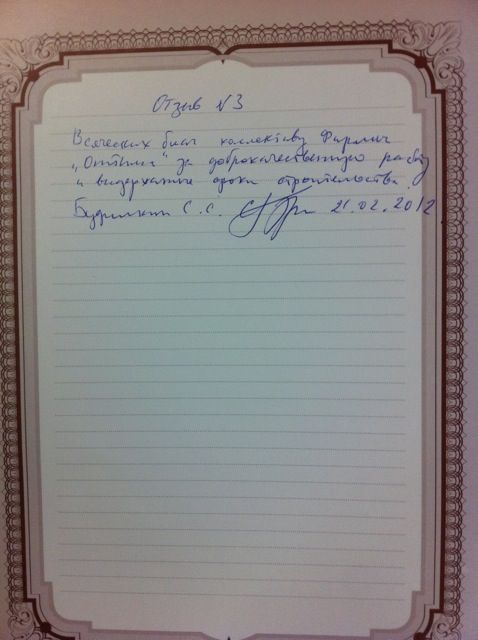 Отзыв №3
Всяческих благ коллективу Фирмы
" за доброкачественную работу
и выдержанные сроки строительства.
С.С. 21.02.2012